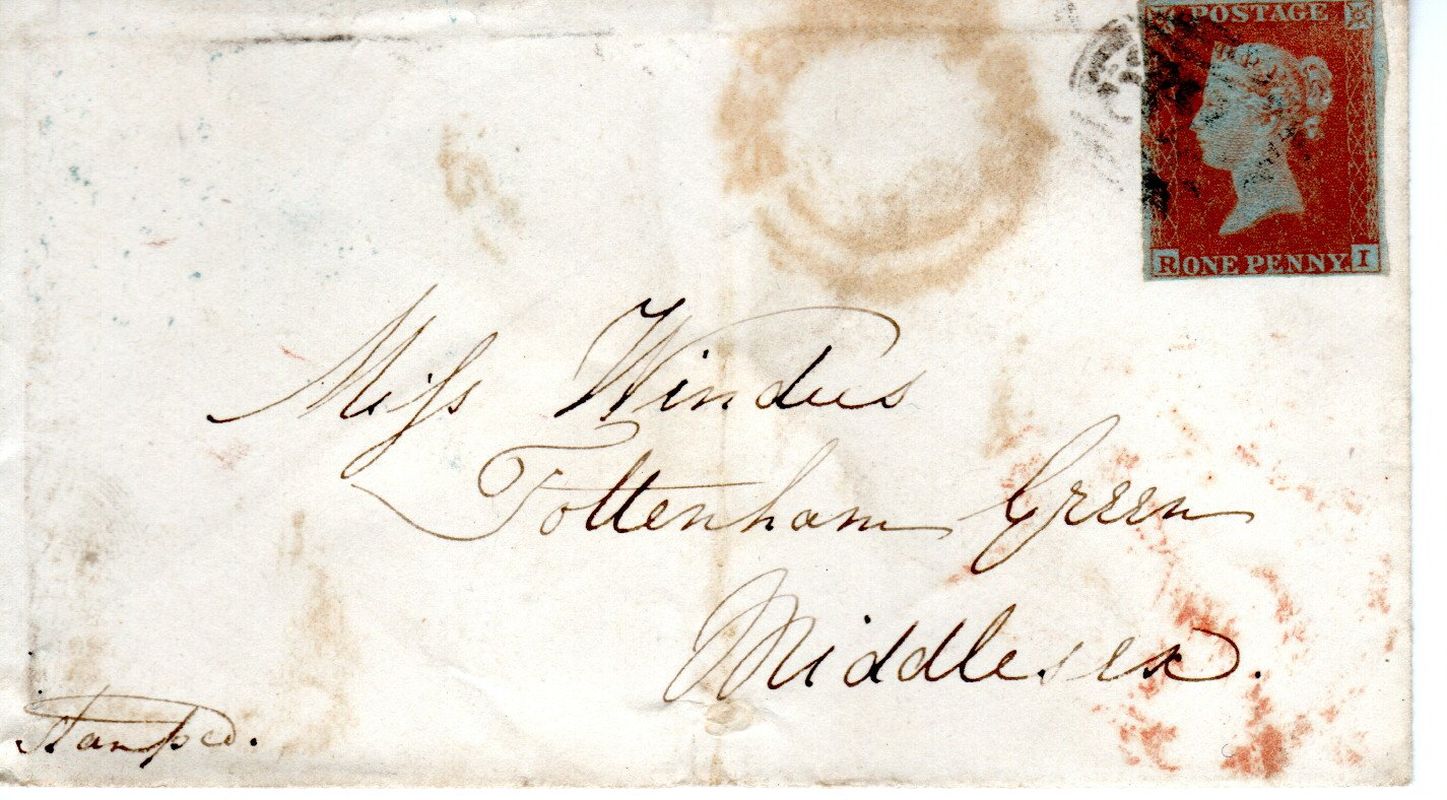 POSTAGE
R ONE PENNY. I
Miss Windus
Tottenham Green
Middlesex.
Stamped.